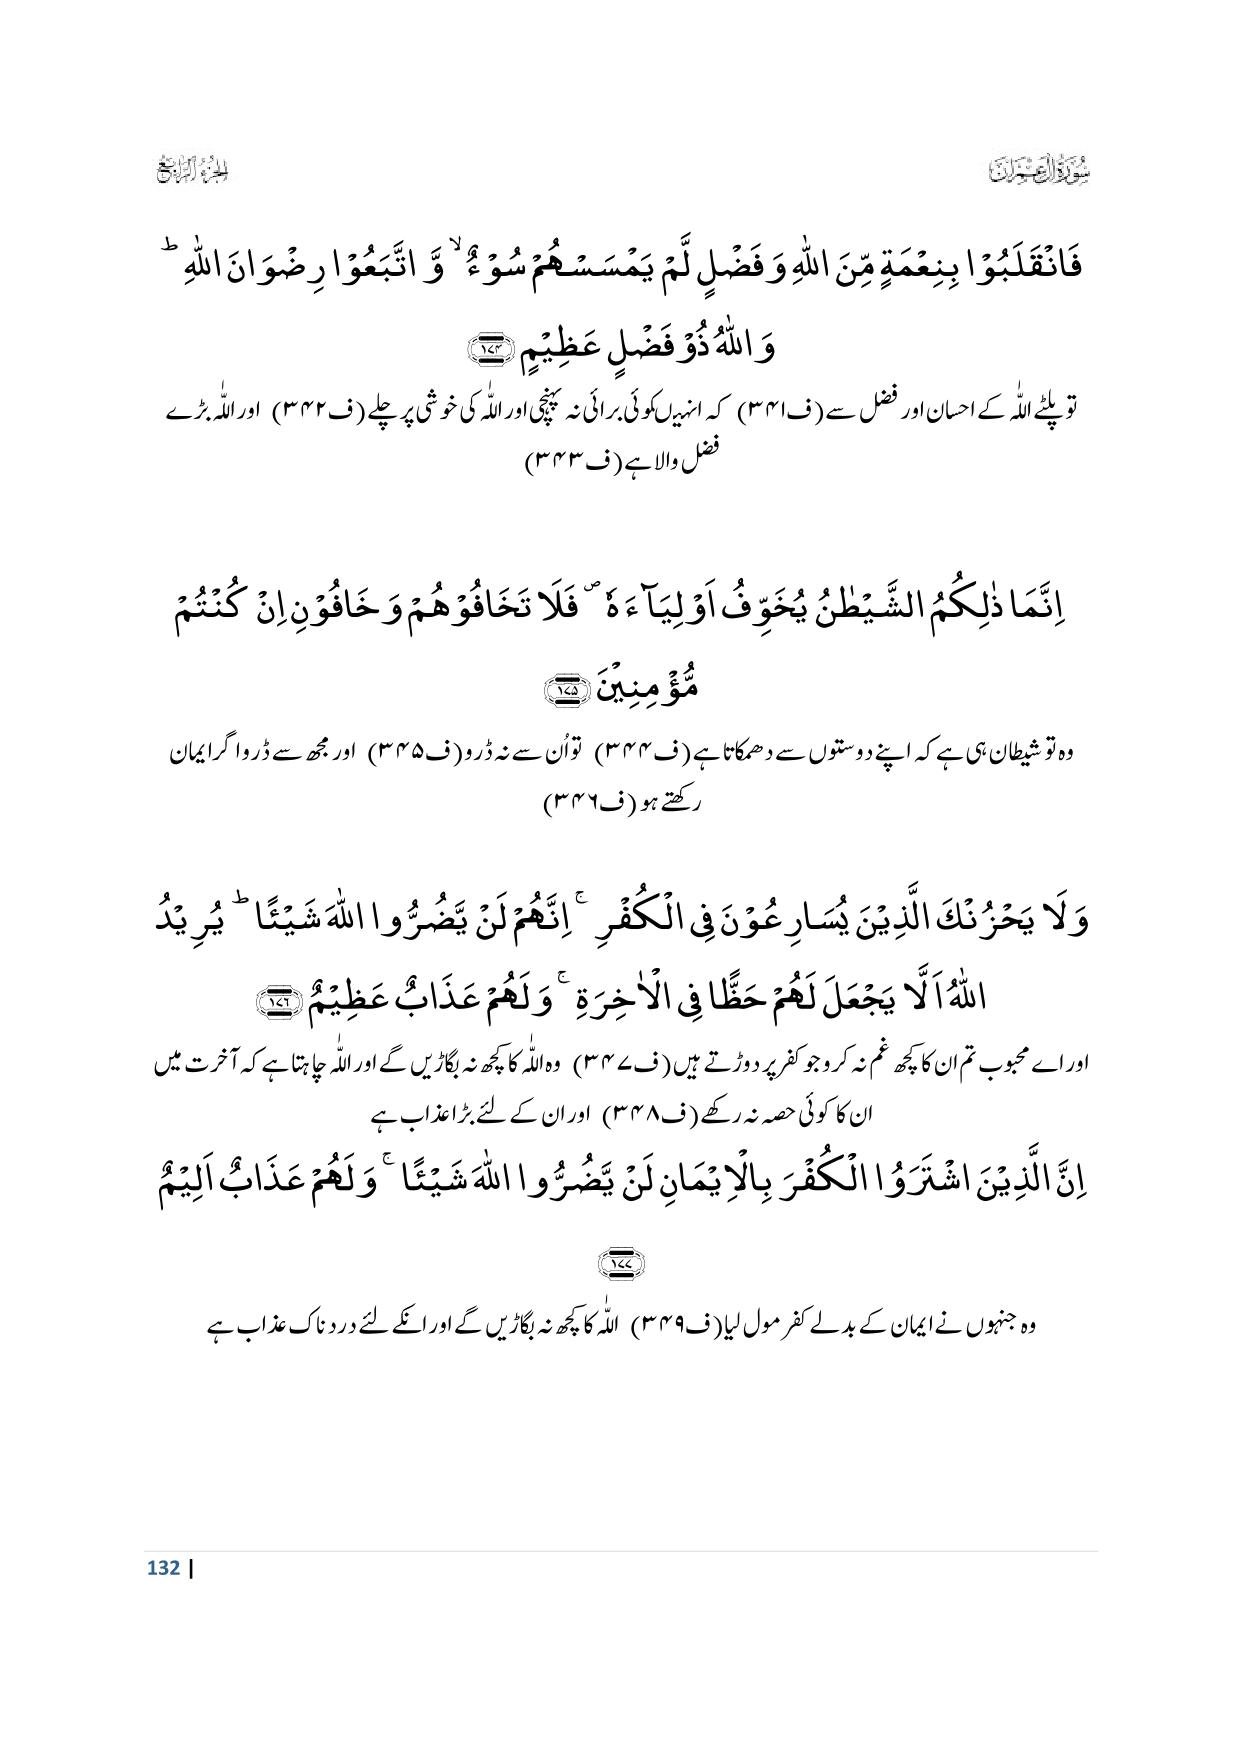 سُوْرَۃُ اٰلِ عِمْرٰنَ
الجُزْءُ الرَّابِعُ
فَانْقَلَبُوْا بِنِعْمَةٍ مِّنَ اللّٰهِ وَ فَضْلٍ لَّمْ یَمْسَسْهُمْ سُوْٓءٌۙ وَّ اتَّبَعُوْا رِضْوَانَ اللّٰهِؕ
وَ اللّٰهُ ذُوْ فَضْلٍ عَظِیْمٍ ﴿۱۷۴﴾
تو پلٹے اللّٰہ کے احسان اور فضل سے (ف۳۴۱) کہ انہیں کوئی برائی نہ پہنچی اور اللّٰہ کی خوشی پر چلے (ف۳۴۲) اور اللّٰہ بڑے
فضل والا ہے (ف۳۴۳)
اِنَّمَا ذٰلِكُمُ الشَّیْطٰنُ یُخَوِّفُ اَوْلِیَآءَه۪ٗ فَلَا تَخَافُوْهُمْ وَ خَافُوْنِ اِنْ كُنْتُمْ
مُّؤْمِنِیْنَ ﴿۱۷۵﴾
وہ تو شیطان ہی ہے کہ اپنے دوستوں سے دھمکاتا ہے (ف۳۴۴) تو اُن سے نہ ڈرو (ف۳۴۵) اور مجھ سے ڈرو اگر ایمان
رکھتے ہو (ف۳۴۶)
وَ لَا یَحْزُنْكَ الَّذِیْنَ یُسَارِعُوْنَ فِی الْكُفْرِۚ اِنَّهُمْ لَنْ یَّضُرُّوا اللّٰهَ شَیْئًاؕ یُرِیْدُ
اللّٰهُ اَلَّا یَجْعَلَ لَهُمْ حَظًّا فِی الْاٰخِرَةِۚ وَ لَهُمْ عَذَابٌ عَظِیْمٌ ﴿۱۷۶﴾
اور اے محبوب تم ان کا کچھ غم نہ کرو جو کفر پر دوڑتے ہیں (ف۳۴۷) وہ اللّٰہ کا کچھ نہ بگاڑیں گے اور اللّٰہ چاہتا ہے کہ آخرت میں
ان کا کوئی حصہ نہ رکھے (ف۳۴۸) اور ان کے لئے بڑا عذاب ہے
اِنَّ الَّذِیْنَ اشْتَرَوُا الْكُفْرَ بِالْاِیْمَانِ لَنْ یَّضُرُّوا اللّٰهَ شَیْئًاۚ وَ لَهُمْ عَذَابٌ اَلِیْمٌ
﴿۱۷۷﴾
وہ جنہوں نے ایمان کے بدلے کفر مول لیا (ف۳۴۹) اللّٰہ کا کچھ نہ بگاڑیں گے اور انکے لئے درد ناک عذاب ہے
132 |